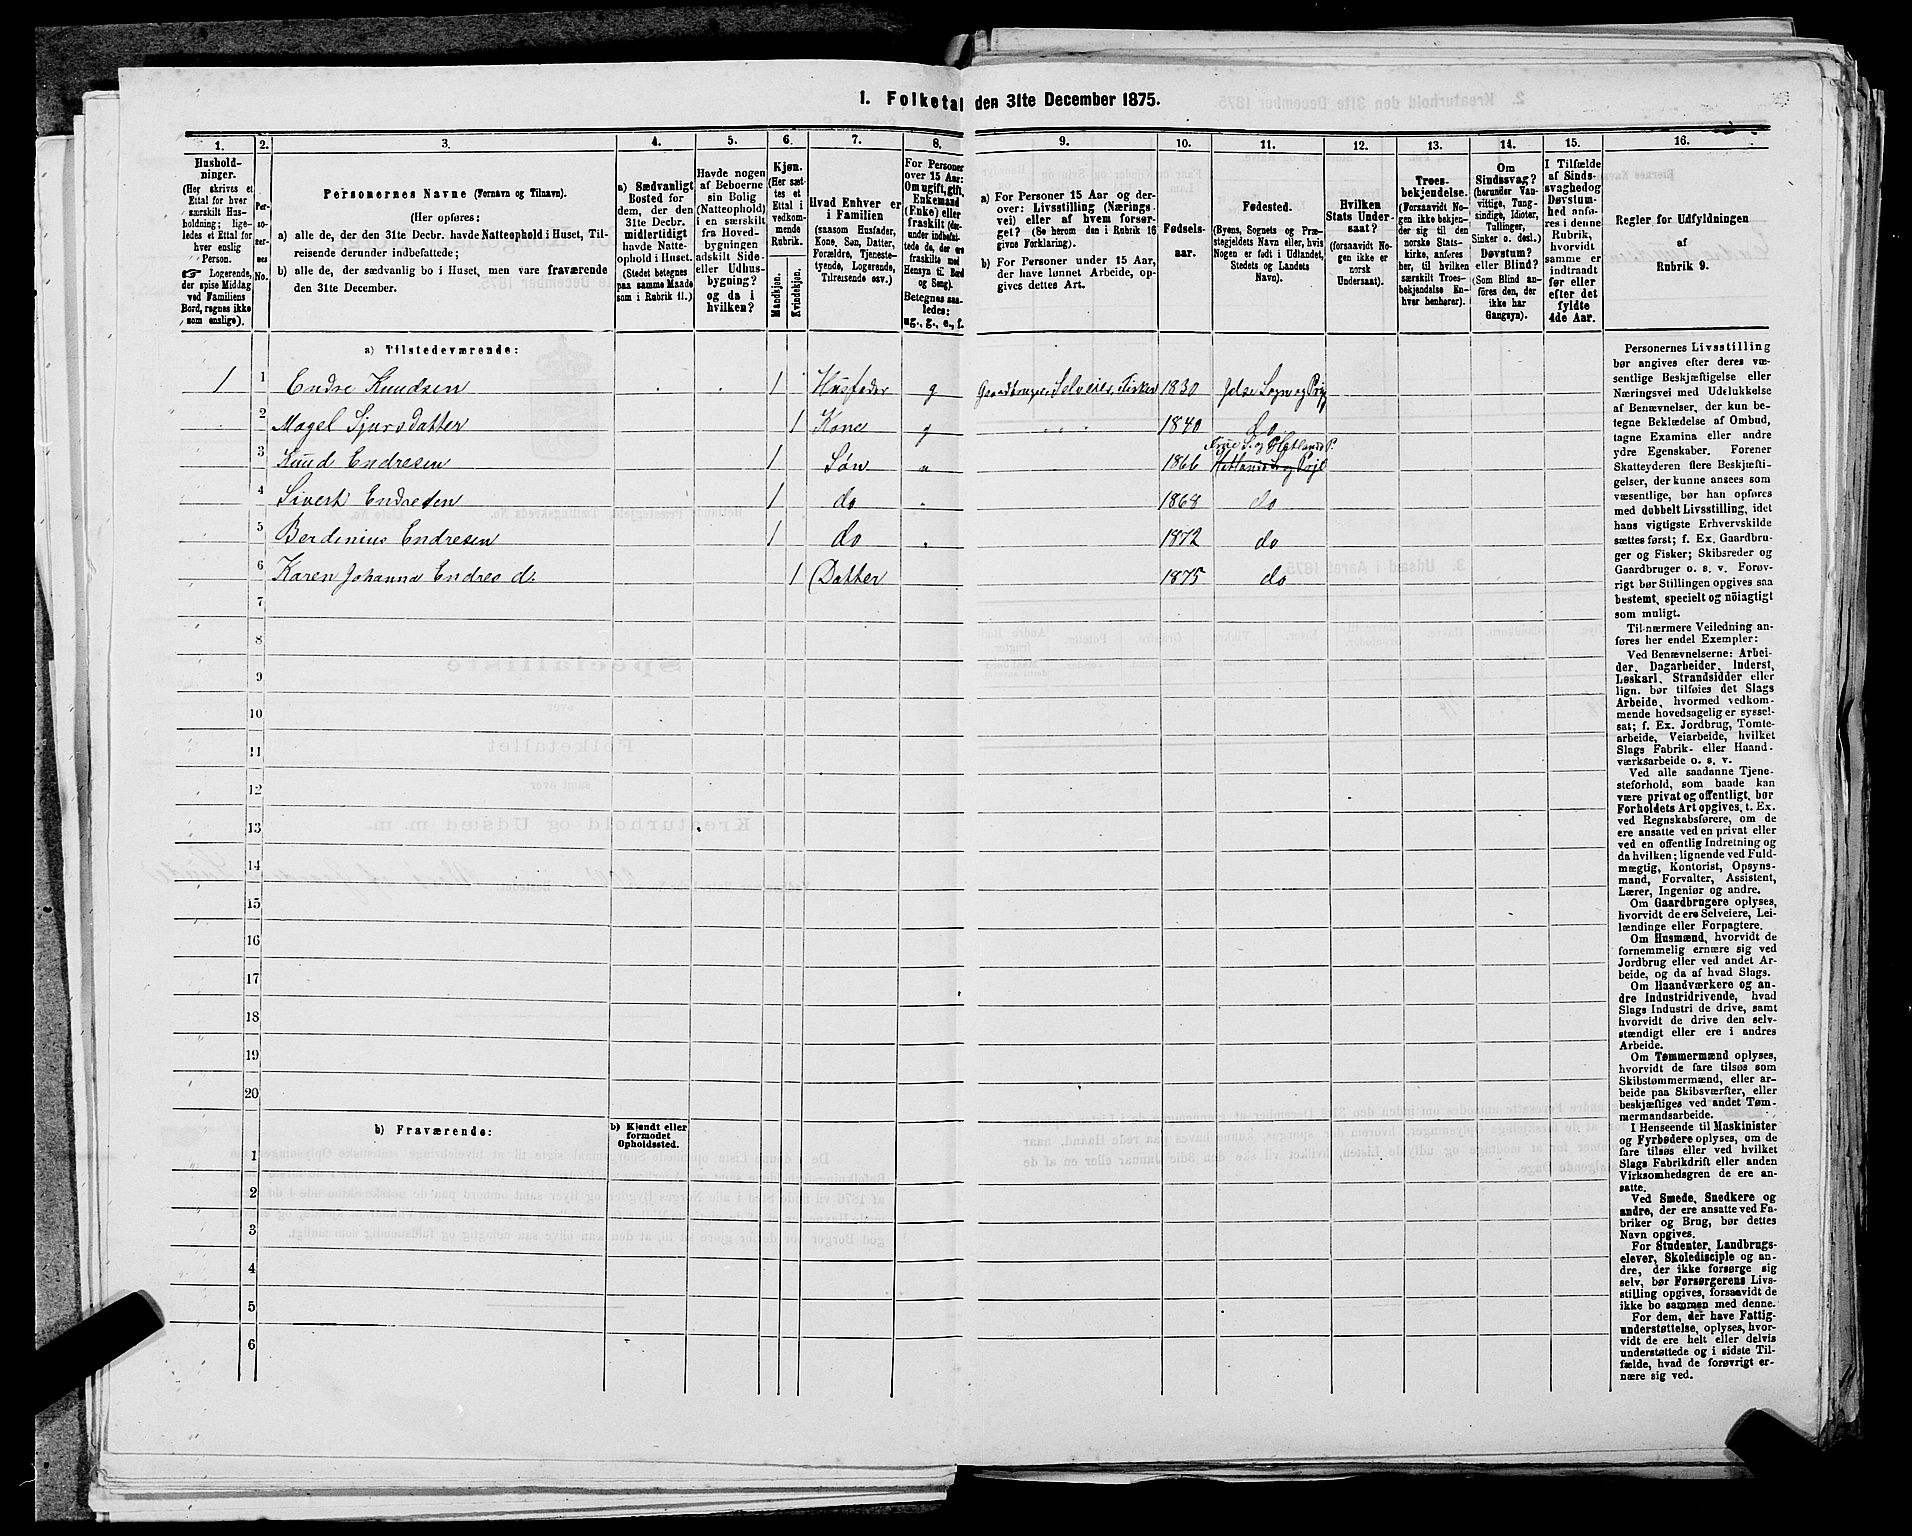 1. Folketal den 31te December 1875.
1. 2. 3. 4. 5. 6. 7. 8. 9. 10. 11. 12. 13. 14. 15. 16.
Hushold-
ninger.
(Her skrives et
Ettal for hver
særskilt Hus-
holdning; lige-
ledes et Ettal for
hver enslig
Person.
☛ Logerende,
der spise Middag
ved Familiens
Bord, regnes ikke
som enslige).
Per-
so-
ner-
nes
No.
Personernes Navne (Fornavn og Tilnavn).
(Her opføres:
a) alle de, der den 31te Decbr. havde Natteophold i Huset, Til-
reisende derunder indbefattede;
b) alle de, der sædvanlig bo i Huset, men vare fraværende
den 31te December.
a) Sædvanligt
Bosted for
dem, der den
31te Decbr.
midlertidigt
havde Natte-
ophold i Huset.
(Stedet betegnes
paa samme Maade
som i Rubrik 11.)
Havde nogen
af Beboerne
sin Bolig
(Natteophold)
i en særskilt
fra Hoved-
bygningen
adskilt Side-
eller Udhus-
bygning?
og da i
hvilken?
Kjøn.
(Her sæt-
tes et
Ettal i
vedkom-
mende
Rubrik.
Mandkjøn.
Kvindekjøn.
Hvad Enhver er
i Familien
(saasom Husfader,
Kone, Søn, Datter,
Forældre, Tjeneste-
tyende, Logerende,
Tilreisende osv.)
For Personer
over 15 Aar:
Om ugift, gift,
Enkemand
(Enke) eller
fraskilt (der-
under indbefat-
tede de, der ere
fraskilte med
Hensyn til Bord
og Seng).
Betegnes saa-
ledes:
ug., g., e., f.
a) For Personer 15 Aar og der-
over: Livsstilling (Nærings-
vei) eller af hvem forsør-
get? (Se herom den i Rubrik 16
givne Forklaring).
b) For Personer under 15 Aar,
der have lønnet Arbeide, op-
gives dettes Art.
Fødsels-
aar.
Fødested.
(Byens, Sognets og Præ-
stegjeldets Navn eller, hvis
Nogen er født i Udlandet,
Stedets og Landets
Navn).
Hvilken
Stats Under-
saat?
(forsaavidt No-
gen ikke er
norsk
Undersaat).
Troes-
bekjendelse.
(Forsaavidt No-
gen ikke bekjen-
der sig til den
norske Stats-
kirke, anføres
her, til hvilken
særskilt Troes-
bekjendelse En-
hver henhører).
Om
Sindssvag?
(herunder Van-
vittige, Tung-
sindige, Idioter,
Tullinger,
Sinker o. desl.).
Døvstum?
eller Blind?
(Som Blind an-
føres den, der
ikke har
Gangsyn).
I Tilfælde
af Sinds-
svaghed og
Døvstum-
hed anfø-
res i denne
Rubrik,
hvorvidt
samme er
indtraadt
før eller
efter det
fyldte
4de Aar.
Regler for Udfyldningen
af
Rubrik 9.
a) Tilstedeværende:
1 1 Endre Knudsen 1 Husfader g Gaardbruger, Selveier, Fisker 1830 Jelse Sogn og Prgj
2 Magel Sjursdatter 1 Kone g 1840 do
3 Knud Endresen 1 Søn 1866
4 Sivert Endresen 1 do 1868 do
5 Berdinius Endresen 1 do 1872 do
6 Karen Johanna Endres d. 1 Datter 1875 do
7
8
9
10
11
12
13
14
15
16
17
18
19
20
b) Fraværende:
b) Kjendt eller
formodet
Opholdssted.
1
2
3
4
5
6
Personernes Livsstilling
bør angives efter deres væ-
sentlige Beskjæftigelse eller
Næringsvei med Udelukkelse
af Benævnelser, der kun be-
tegne Beklædelse af Ombud,
tagne Examina eller andre
ydre Egenskaber. Forener
Skatteyderen flere Beskjæfti-
gelser, der kunne ansees som
væsentlige, bør han opføres
med dobbelt Livsstilling, idet
hans vigtigste Erhvervskilde
sættes først; f. Ex. Gaardbru-
ger og Fisker; Skibsreder og
Gaardbruger o. s. v. Forøv-
rigt bør Stillingen opgives saa
bestemt, specielt og nöiagtigt
som muligt.
Til nærmere Veiledning an-
føres her endel Exempler:
Ved Benævnelserne: Arbei-
der, Dagarbeider, Inderst,
Løskarl, Strandsidder eller
lign. bør tilføies det Slags
Arbeide, hvormed vedkom-
mende hovedsagelig er syssel-
sat; f. Ex. Jordbrug, Tomte-
arbeide, Veiarbeide, hvilket
Slags Fabrik- eller Haand-
værksarbeide o. s. v.
Ved alle saadanne Tjene-
steforhold, som baade kan
være privat og offentligt, bør
Forholdets Art opgives, t. Ex.
ved Regnskabsførere, om de
ere ansatte ved en privat eller
ved en offentlig Indretning og
da hvilken; lignende ved Fuld-
mægtig, Kontorist, Opsyns-
mand, Forvalter, Assistent,
Lærer, Ingeniør og andre.
Om Gaardbrugere oplyses,
hvorvidt de ere Selveiere, Lei-
lændinge eller Forpagtere.
Om Husmænd, hvorvidt de
fornemmelig ernære sig ved
Jordbrug eller ved andet Ar-
beide, og da af hvad Slags.
Om Haandværkere og an-
dre Industridrivende, hvad
Slags Industri de drive, samt
hvorvidt de drive den selv-
stændigt eller ere i andres
Arbeide.
Om Tømmermænd oplyses,
hvorvidt de fare tilsøs som
Skibstømmermænd, eller ar-
beide paa Skibsværfter, eller
beskjæftiges ved andet Tøm-
mermandsarbeide.
I Henseende til Maskinister
og Fyrbødere oplyses, om de
fare tilsøs eller ved hvilket
Slags Fabrikdrift eller anden
Virksomhedsgren de ere an-
satte.
Ved Smede, Snedkere og
andre, der ere ansatte ved Fa-
briker og Brug, bør dettes
Navn opgives.
For Studenter, Landbrugs-
elever, Skoledisciple og an-
dre, der ikke forsørge sig
selv, bør Forsørgerens Livs-
stilling opgives, forsaavidt de
ikke bo sammen med denne.
For dem, der have Fattig-
understøttelse, oplyses, hvor-
vidt de ere helt eller delvis
understøttede og i sidste Til-
fælde, hvad de forøvrigt er-
nære sig ved.